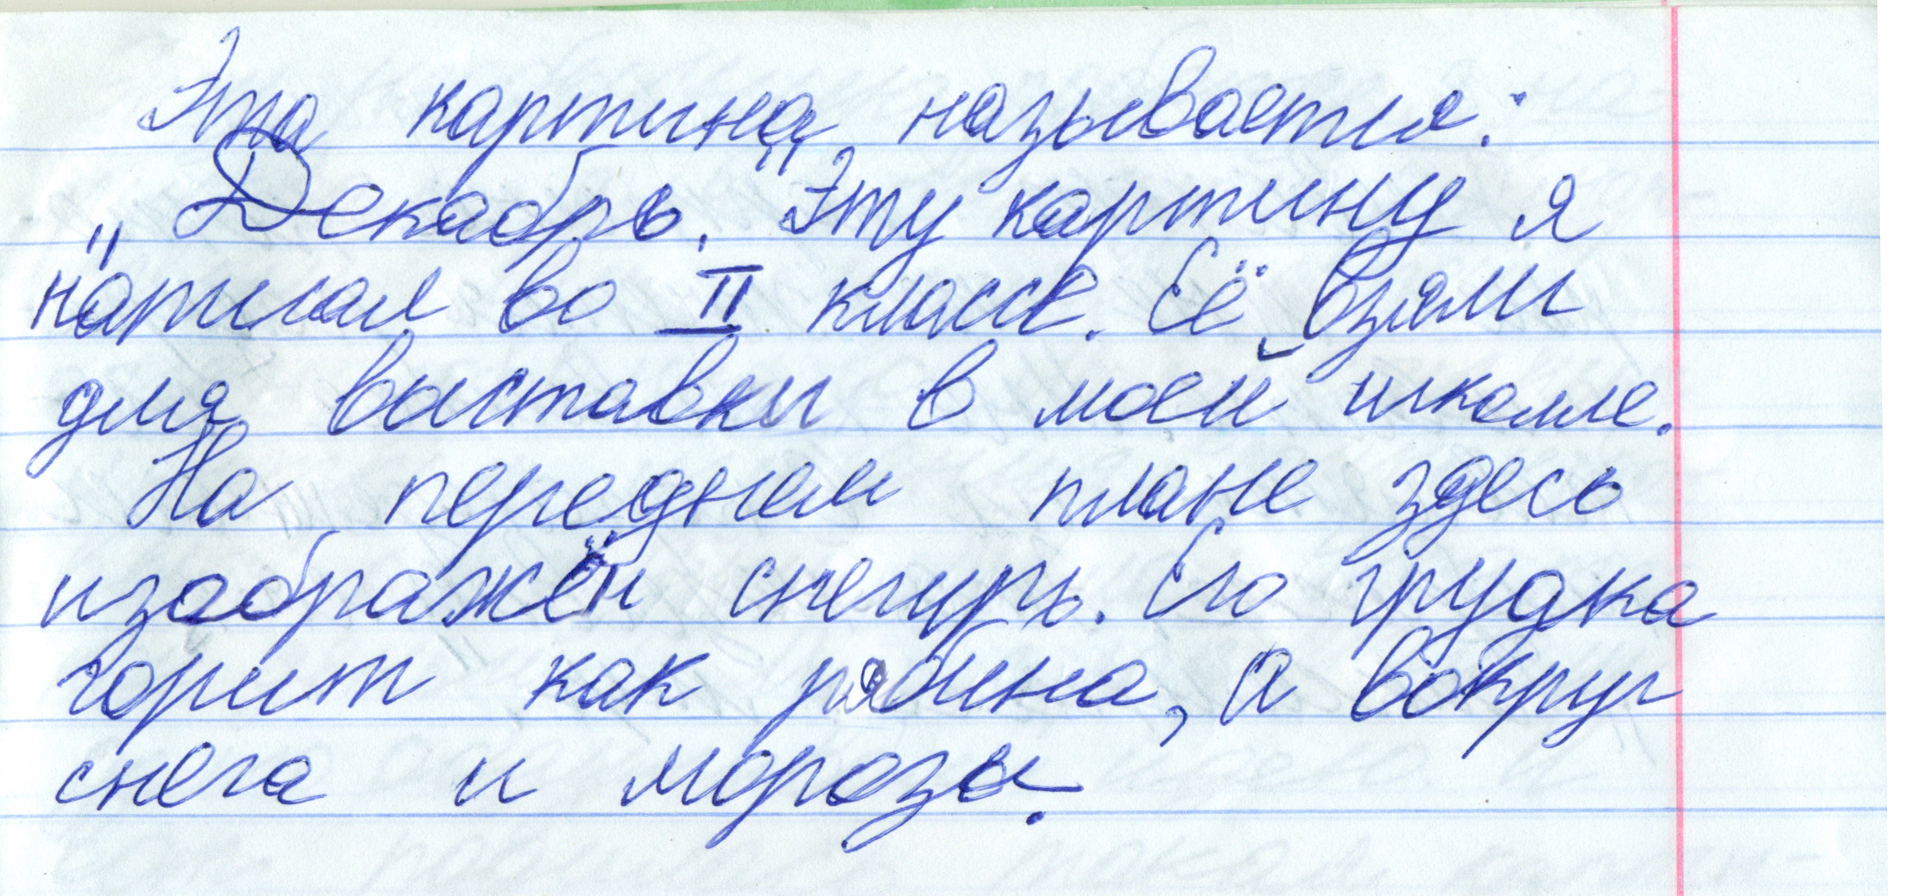 Эта картина называется:
„Декабрь." Эту картину я
написал во II классе. Её взяли
для выставки в моей школе.
На переднем плане здесь
изображён снегирь. Его грудка
горит как рябина, а вокруг
снега и морозы.